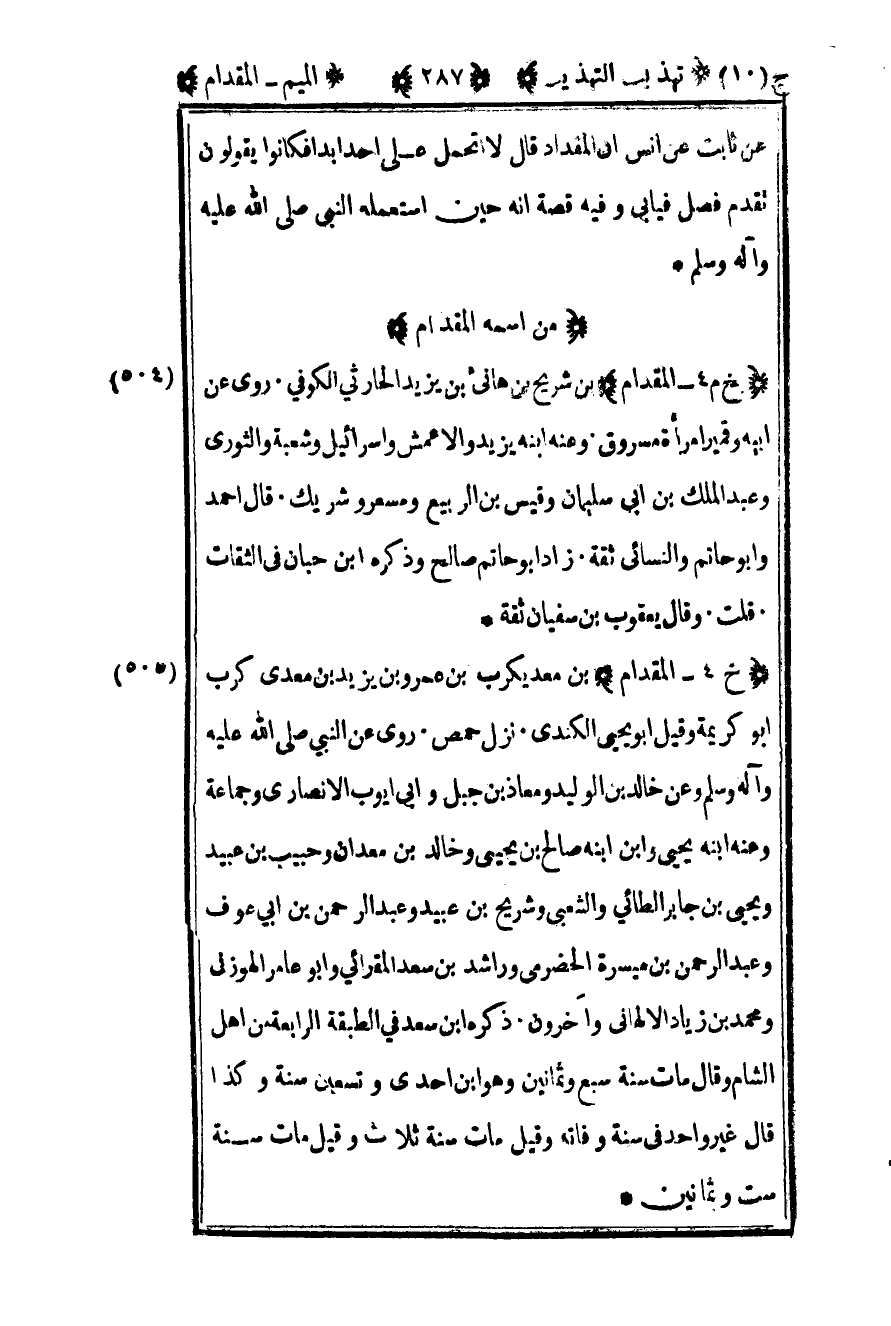 ج (١٠) تهذيب التهذيب ٢٨٧ الميم - المقدام
عن ثابت عن انس ان المقداد قال لا اتحمل على احد ابدا فكانوا يقولون
تقدم فصل فيابى و فيه قصة انه حين استعمله النبي صلى الله عليه
وآله وسلم *
من اسمه المقدام
خ م ٤ - المقدام بن شريح بن هانئ بن يزيد الحارثي الكوفي · روى عن (٥٠٤)
ابيه و قمير امرأة مسروق · وعنه ابنه يزيد والاعمش واسرائيل وشعبة والثورى
وعبد الملك بن ابي سليمان وقيس بن الربيع ومسعر و شريك · قال احمد
وابو حاتم والنسائى ثقة · زاد ابو حاتم صالح وذكره ابن حبان فى الثقات
· قلت · وقال يعقوب بن سفيان ثقة *
خ ٤ - المقدام بن معد يكرب بن عمرو بن يزيد بن معدى كرب (٥٠٥)
ابو كريمة وقيل ابو يحيى الكندى · نزل حمص · روى عن النبي صلى الله عليه
وآله وسلم وعن خالد بن الوليد ومعاذ بن جبل و ابى ايوب الانصارى وجماعة
وعنه ابنه يحيى وابن ابنه صالح بن يحيى وخالد بن معدان وحبيب بن عبيد
ويحيى بن جابر الطائي والشعبى وشريح بن عبيد وعبد الرحمن بن ابي عوف
وعبد الرحمن بن ميسرة الحضرمى وراشد بن سعد المقرائي وابو عامر الهوزنى
ومحمد بن زياد الالهانى وآخرون · ذكره ابن سعد في الطبقة الرابعة من اهل
الشام وقال مات سنة سبع وثمانين وهو ابن احدى و تسعين سنة و كذا
قال غير واحد فى سنة و فاته وقيل مات سنة ثلاث و قيل مات سنة
ست و ثمانين *